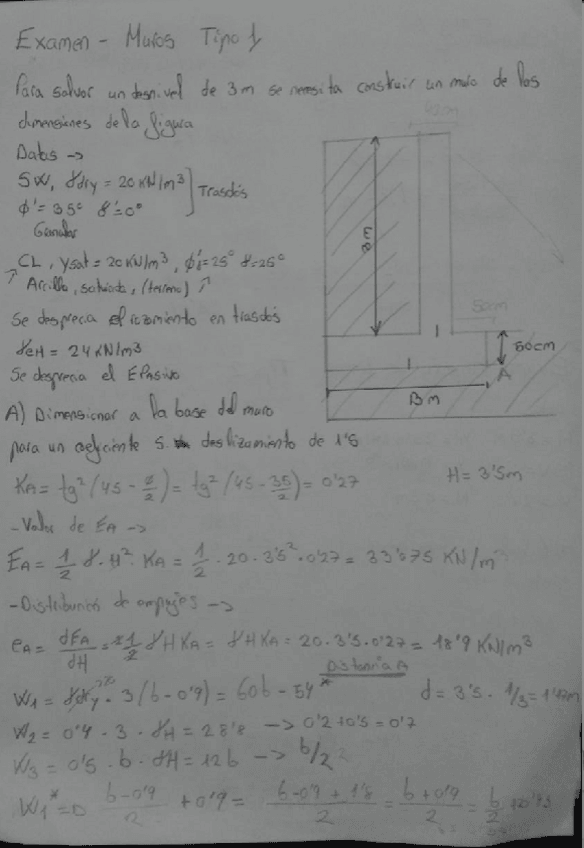 Examen - Muros Tipo 1
Para salvar un desnivel de 3m se necesita construir un muro de las
dimensiones de la figura
Datos →
SW, γdry = 20 KN/m³
φ' = 35° δ'=0°
Trasdós
Granular
CL, γsat = 20 KN/m³, φ'=25° δ=25°
Arcilla, saturada, (terreno)
Se desprecia el rozamiento en trasdós
γCH = 24 KN/m³
Se desprecia el EPasivo
50cm
50cm
A
B m
A) Dimensionar a la base del muro
para un coeficiente S. deslizamiento de 1'5
KA = tg² (45 - φ/2) = tg² (45 - 35/2) = 0'27
H = 3'5m
- Valor de EA →
EA = 1/2 γ · H² · KA = 1/2 · 20 · 3'5² · 0'27 = 33'075 KN/m
- Distribución de empujes →
eA = dEA/dH = 2·1/2 γHKA = γHKA = 20 · 3'5 · 0'27 = 18'9 KN/m³
Distancia A
W1 = γdry · 3(b - 0'9) = 60b - 54*
d = 3'5 · 1/3 = 1'17m
W2 = 0'4 · 3 · γH = 28'8 → 0'2 + 0'5 = 0'7
W3 = 0'5 · b · γH = 12b → b/2
W1* => b-0'9/2 + 0'9 = b-0'9+1'8/2 = b+0'9/2 = b/2 + 0'45